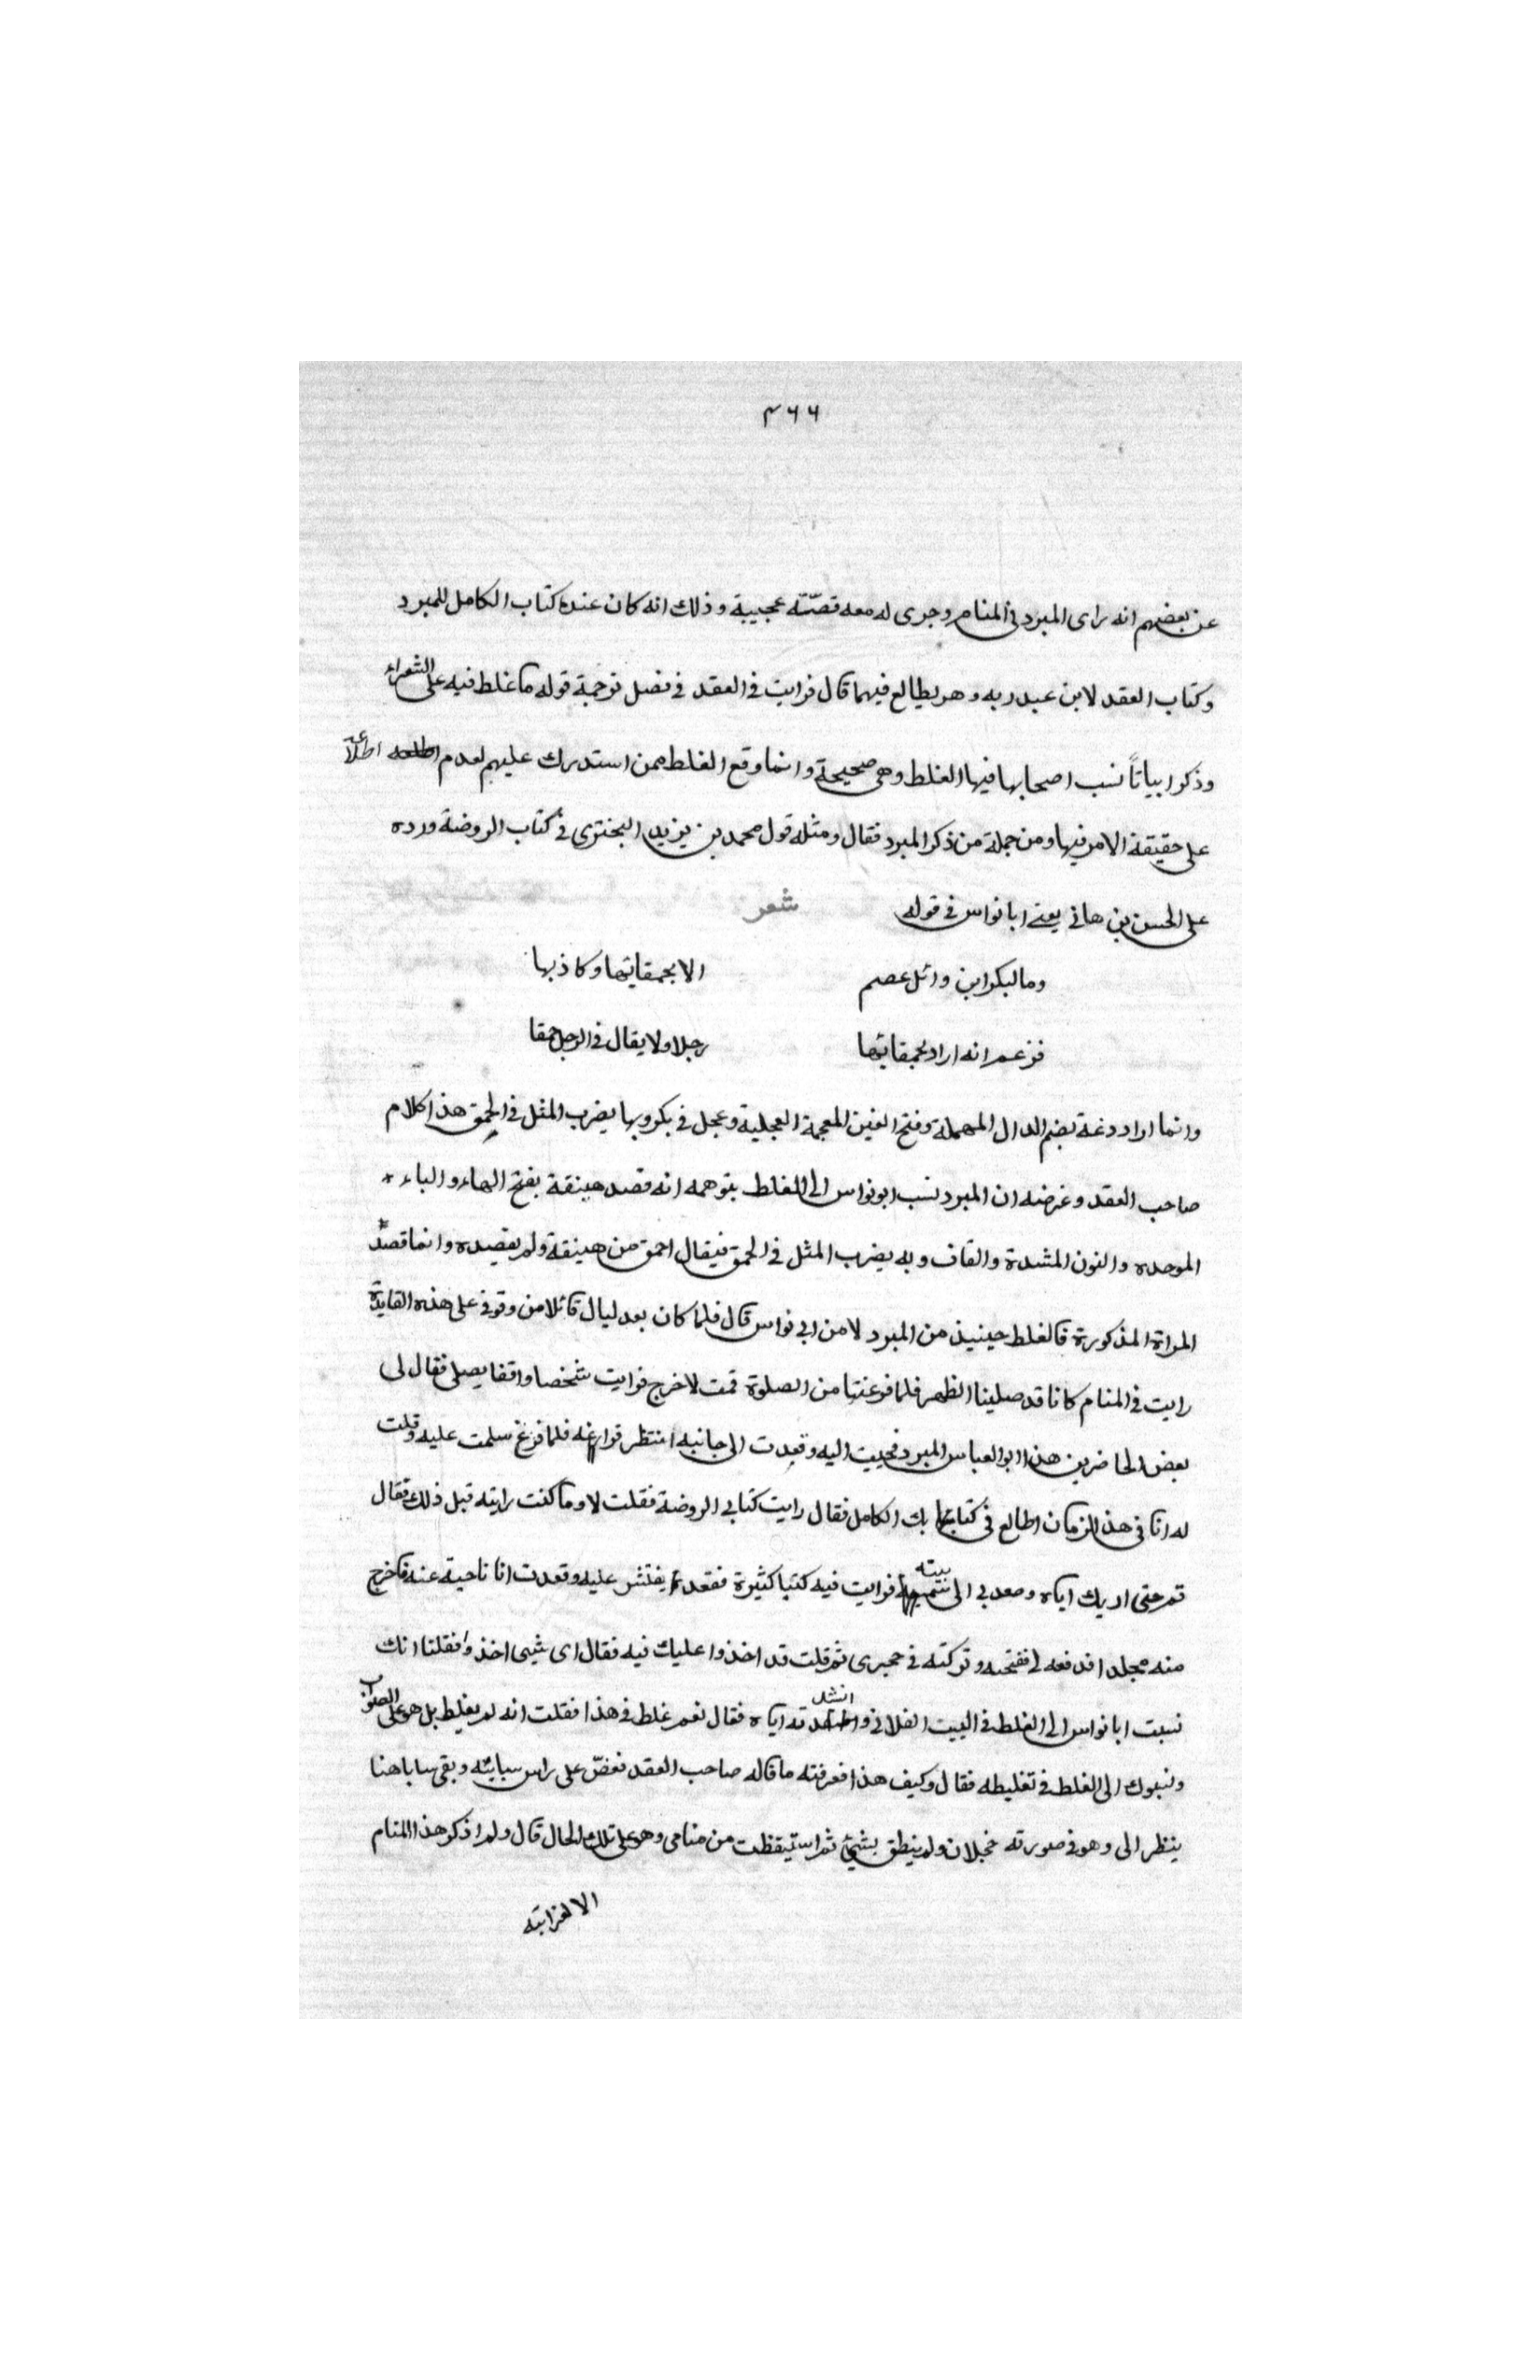 ٤٦٦
عن بعضهم انه راى المبرد في المنام وجرى له معه قصّة عجيبة وذلك انه كان عنده كتاب الكامل للمبرد
وكتاب العقد لابن عبد ربه وهو يطالع فيهما قال فرايت في العقد في فصل ترجمة قوله ما غلط فيه على الشعراء
وذكر ابياتاً نسب اصحابها فيها الغلط وهى صحيحة وانما وقع الغلط ممن استدرك عليهم لعدم اطلاعه
على حقيقة الامر فيها ومن جملة من ذكر المبرد فقال ومثله قول محمد بن يزيد البختري في كتاب الروضة ورده
على الحسن بن هاني يعني ابا نواس في قوله شعر
وما لبكر ابن وائل عصم الا بحمقايها وكاذبها
فزعم انه اراد بحمقائها رجلا ولا يقال في الرجل حمقا
وانما اراد دغة بضم الدال المهملة وفتح الغين المعجمة العجلية وعجل في بكر وبها يضرب المثل في الحمق هذا كلام
صاحب العقد وغرضه ان المبرد نسب ابو نواس الى الغلط بتوهمه انه قصد هبنقة بفتح الهاء والباء
الموحده والنون المشدة والقاف وبه يضرب المثل في الحمق فيقال احمق من هبنقة ولم يقصده وانما قصد
المراة المذكورة فالغلط حينيذ من المبرد لا من ابي نواس قال فلما كان بعد ليال قائلا من وقوفي على هذه الفايدة
رايت في المنام كانا قد صلينا الظهر فلما فرغنا من الصلوة قمت لاخرج فرايت شخصا واقفا يصلي فقال لى
بعض الحاضرين هذا ابو العباس المبرد فجيت اليه وقعدت الى جانبه انتظر فراغه فلما فرغ سلمت عليه وقلت
له انا في هذا الزمان اطالع في كتابك الكامل فقال رايت كتابي الروضة فقلت لا وما كنت رايته قبل ذلك فقال
قم حتى اريك اياه وصعد بي الى بيته فرايت فيه كتبا كثيرة فقعد يفتش عليه وقعدت انا ناحية عنه فاخرج
منه مجلدا فدفعه لى ففتحته وتركته في حجرى ثم قلت قد اخذوا عليك فيه فقال اى شيى اخذوا فقلنا انك
نسبت ابا نواس الى الغلط في البيت الفلاني وانشدته اياه فقال نعم غلط في هذا فقلت انه لم يغلط بل هو على الصواب
ونسبوك الى الغلط في تغليطه فقال وكيف هذا فعرفته ما قاله صاحب العقد فعضّ على راس سبابته وبقى ساباهنا
ينظر الى وهو في صورته خجلان ولم ينطق بشيئ ثم استيقظت من منامي وهو على تلك الحال قال ولم اذكر هذا المنام
الا لغرابته